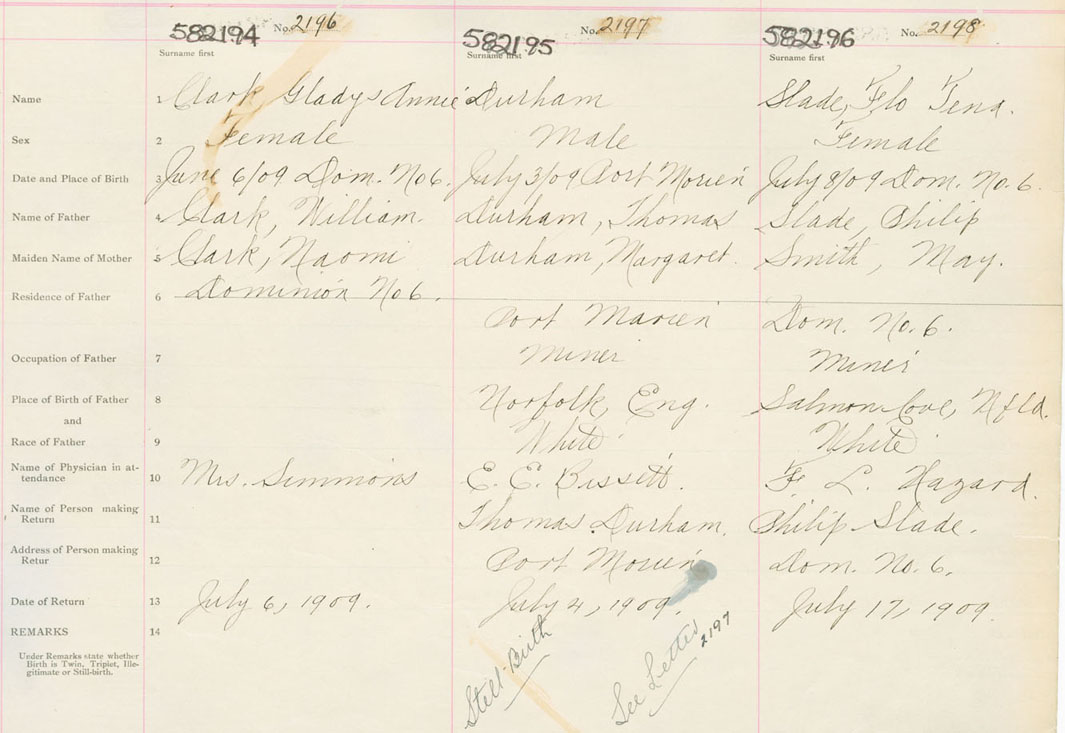 582194 No. 2196 582195 No. 2197 582196 No. 2198
Surname first Surname first Surname first
Name 1 Clark Gladys Annie Durham Slade, Flo Tena.
Sex 2 Female Male Female
Date and Place of Birth 3 June 6/09 Dom. No 6. July 3/09 Port Morien July 8/09 Dom. No. 6.
Name of Father 4 Clark, William. Durham, Thomas Slade, Philip
Maiden Name of Mother 5 Clark, Naomi Durham, Margaret. Smith, May.
Residence of Father 6 Dominion No 6.
Port Morien Dom. No. 6.
Occupation of Father 7 Miner Miner
Place of Birth of Father 8 Norfolk, Eng. Salmon Cove, Nfld.
and
Race of Father 9 White White
Name of Physician in at-
tendance 10 Mrs. Simmons E. E. Bissett. F. L. Hazard.
Name of Person making
Return 11 Thomas Durham. Philip Slade.
Address of Person making
Retur 12 Port Morien Dom. No. 6.
Date of Return 13 July 6, 1909. July 4, 1909. July 17, 1909.
REMARKS 14
Still-Birth See Letter 2197
Under Remarks state whether
Birth is Twin, Triplet, Ille-
gitimate or Still-birth.